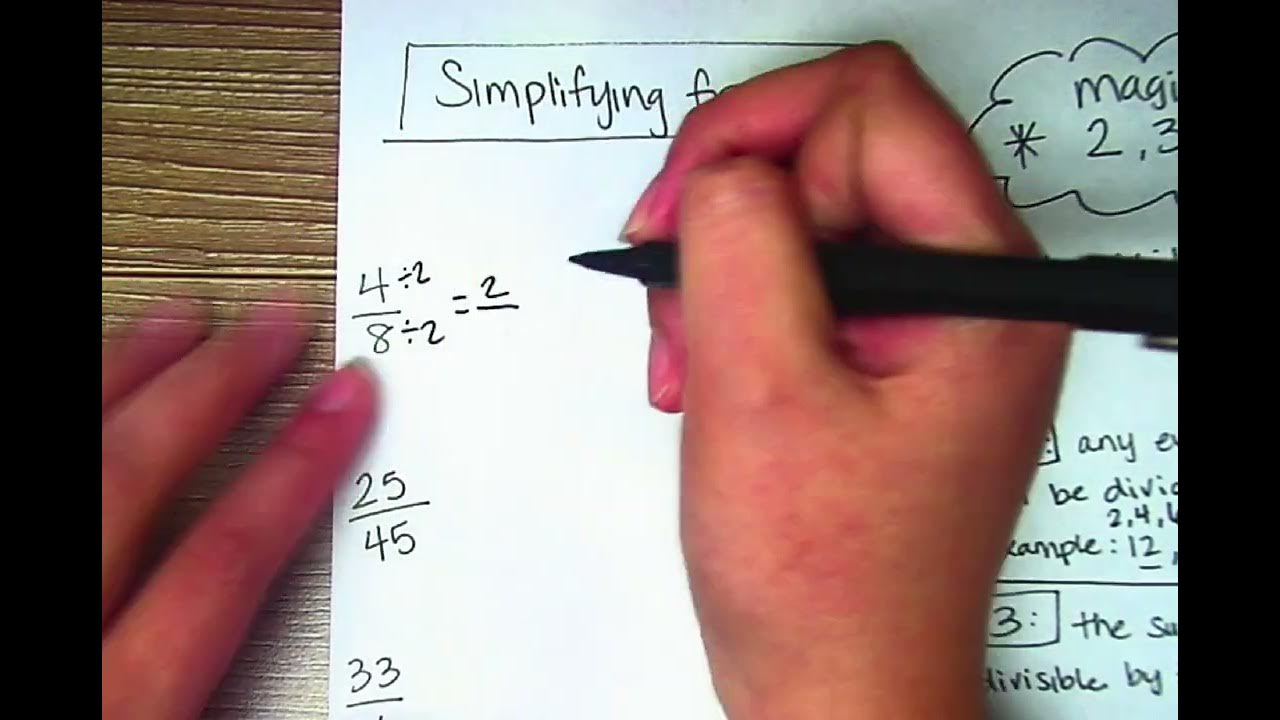 Simplifying
magi
* 2, 3
4 ÷2
8 ÷2
= 2
25
45
any e
be divi
2, 4, 6
xample: 12,
3: the su
divisible by
33